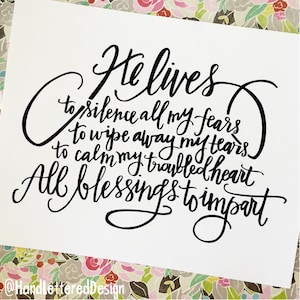 He lives
to silence all my fears
to wipe away my tears
to calm my troubled heart
All blessings to impart
@HandLetteredDesign